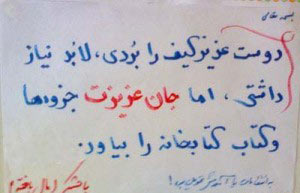 بسمه تعالی
دوست عزیز کیف را بُردی، لابد نیاز
داشتی، اما جان عزیزت جزوه‌ها
و کتاب کتابخانه را بیاور.
با تشکر (مال باخته)